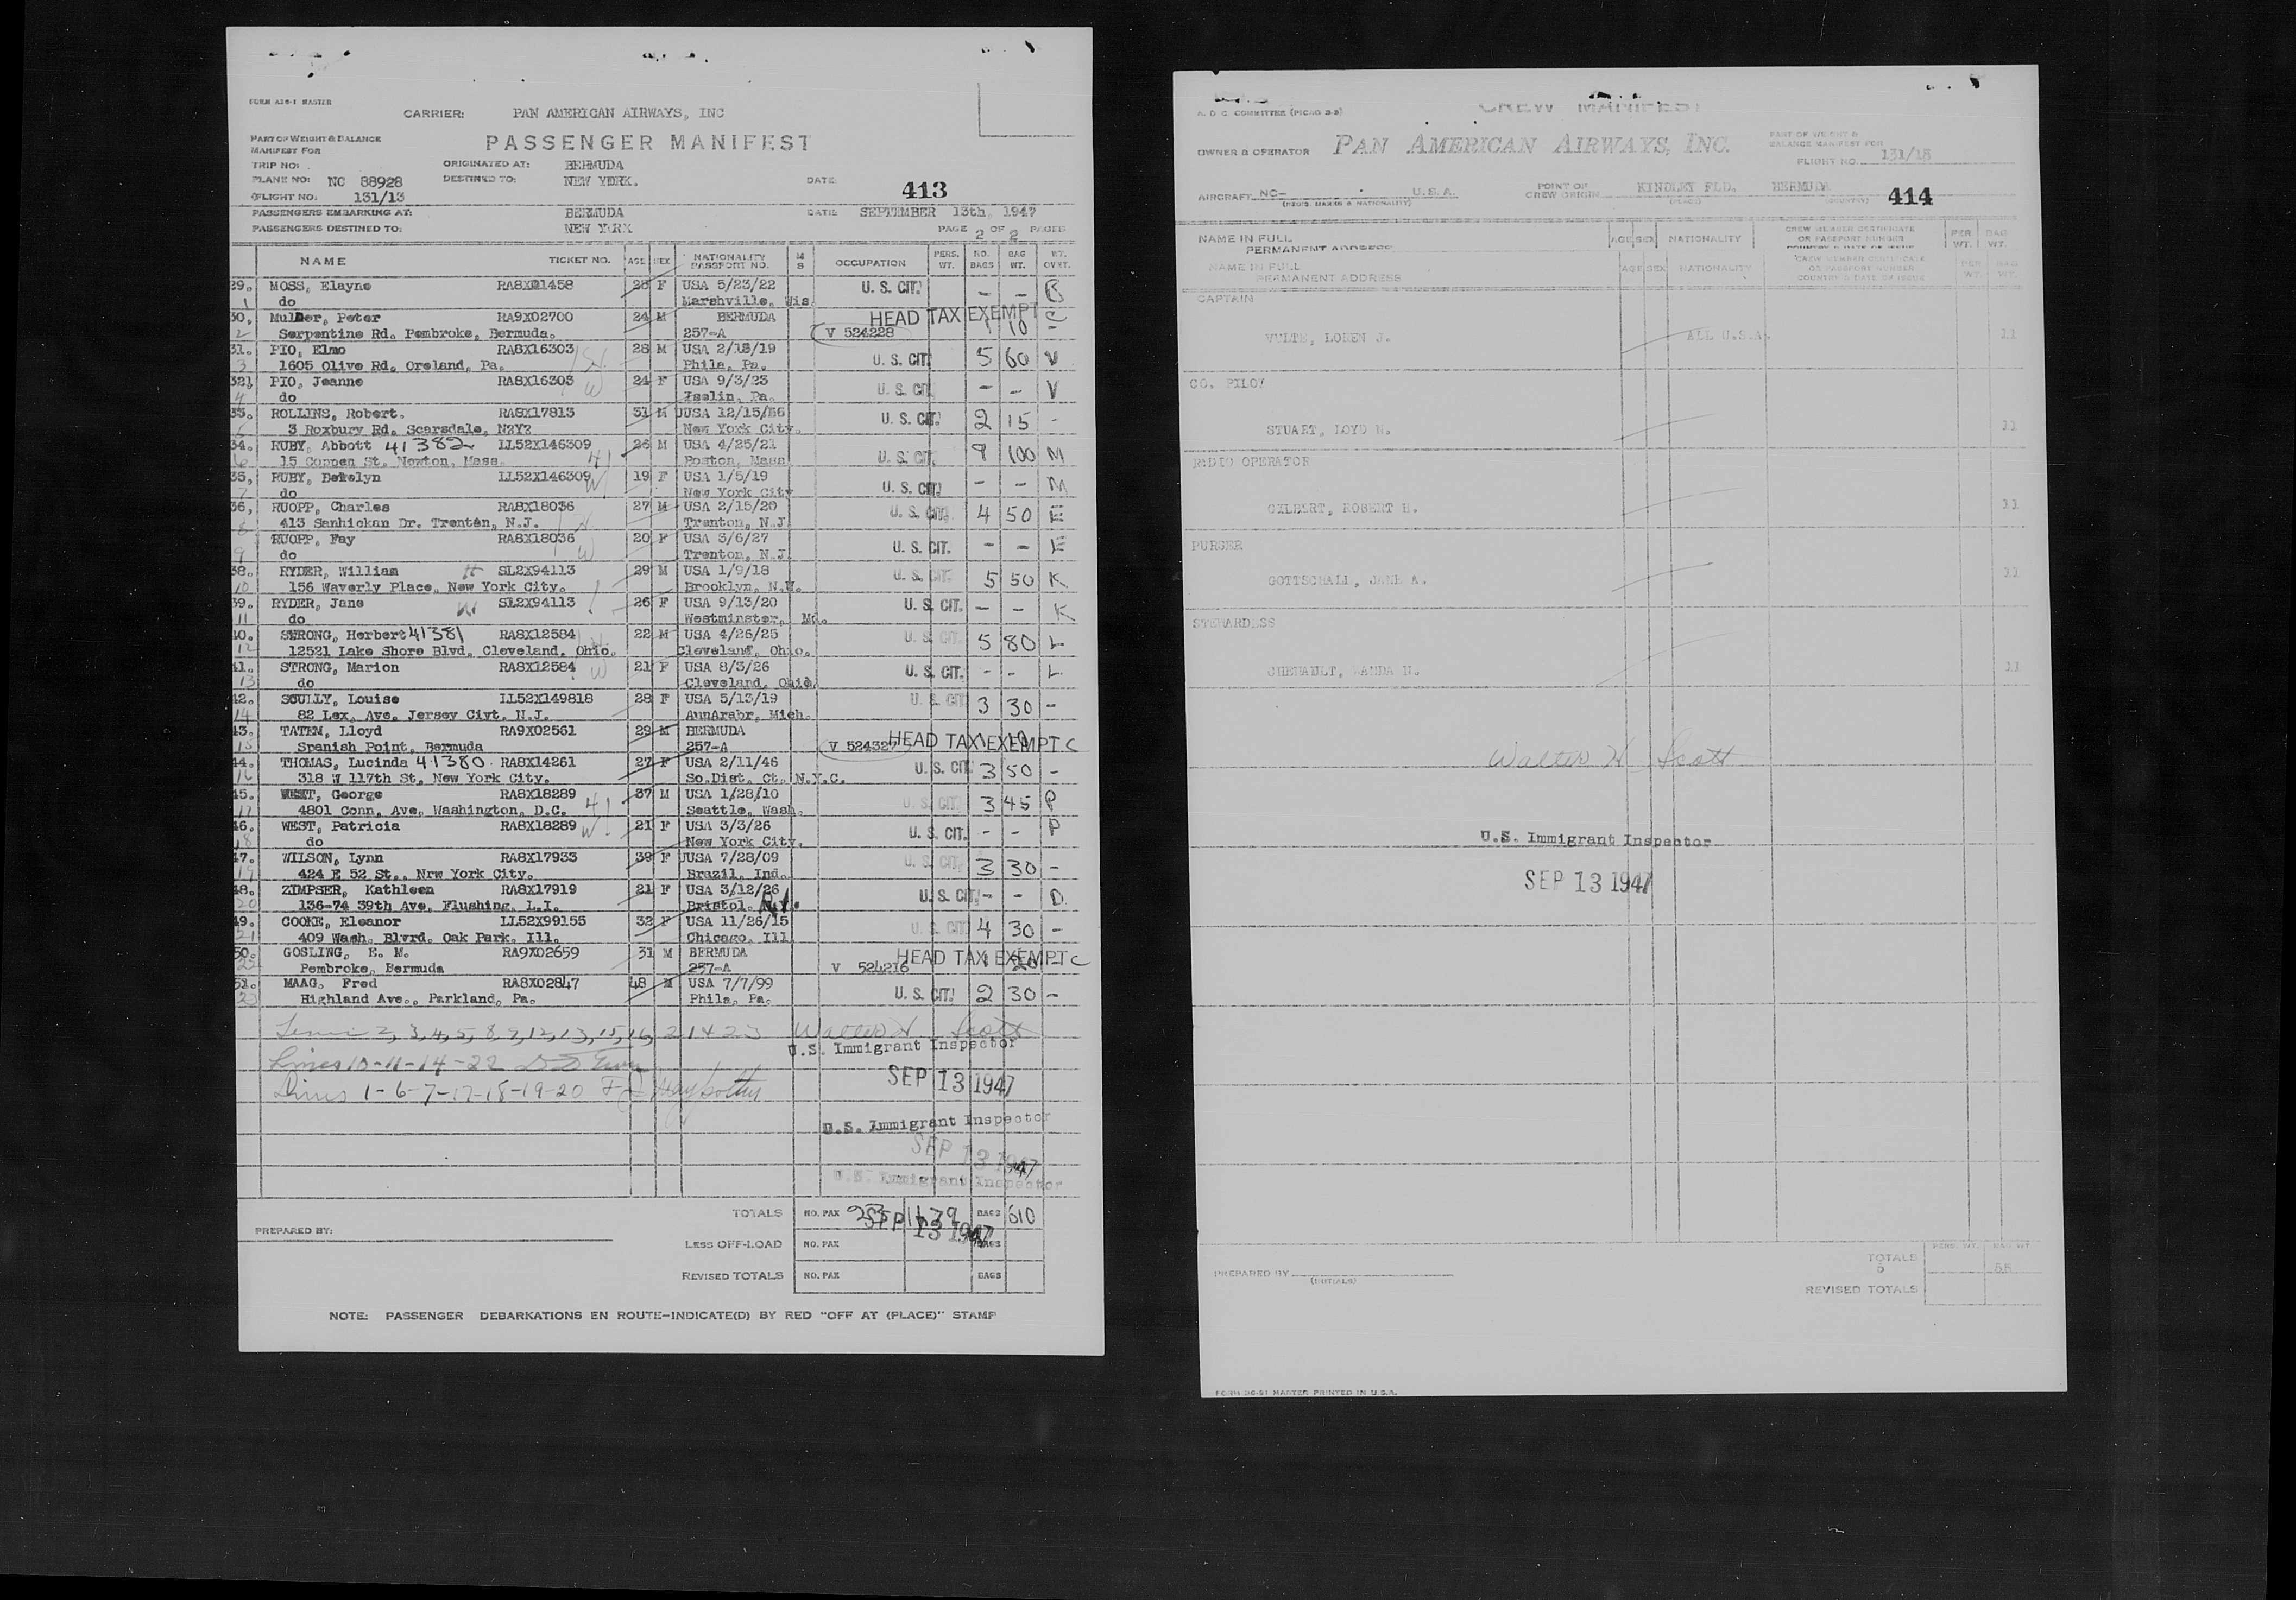 FORM A36-1 MASTER
CARRIER: PAN AMERICAN AIRWAYS, INC
PART OF WEIGHT & BALANCE
MANIFEST FOR
PASSENGER MANIFEST
TRIP NO: ORIGINATED AT: BERMUDA
PLANE NO: NC 88928 DESTINED TO: NEW YORK. DATE: 413
FLIGHT NO: 131/13
PASSENGERS EMBARKING AT: BERMUDA DATE: SEPTEMBER 13th, 1947
PASSENGERS DESTINED TO: NEW YORK PAGE 2 OF 2 PAGES
NAME TICKET NO. AGE SEX NATIONALITY PASSPORT NO. M S OCCUPATION PERS. WT. NO. BAGS BAG WT. WT. OVWT.
29. MOSS, Elayne RA8X21458 25 F USA 5/23/22 U. S. CIT. - -
1 do Marshville, Wis.
30. Mulder, Peter RA9X02700 24 M BERMUDA HEAD TAX EXEMPT C
2 Serpentine Rd. Pembroke, Bermuda. 257-A V 524228 1 10 -
31. PIO, Elmo RA8X16303 28 M USA 2/18/19 U. S. CIT. 5 60 V
3 1605 Olive Rd. Oreland, Pa. Phila, Pa.
32. PIO, Jeanne RA8X16303 W 24 F USA 9/3/23 U. S. CIT. - - V
4 do Iselin, Pa.
33. ROLLINS, Robert. RA8X17813 31 M USA 12/15/56 U. S. CIT. 2 15 -
3 Roxbury Rd. Scarsdale, N?Y? New York City.
34. RUBY, Abbott 41382 LL52X146309 26 M USA 4/25/21 U. S. CIT. 9 100 M
6 15 Coppen St. Newton, Mass. H Boston, Mass
35. RUBY, Bettelyn LL52X146309 W 19 F USA 1/5/19 U. S. CIT. - - M
7 do New York City
36. RUOPP, Charles RA8X18036 27 M USA 2/15/20 U. S. CIT. 4 50 E
8 413 Sanhickan Dr. Trenton, N.J. H Trenton, N.J.
RUOPP, Fay RA8X18036 20 F USA 3/6/27 U. S. CIT. - - E
9 do W Trenton, N.J.
38. RYDER, William H SL2X94113 29 M USA 1/9/18 U. S. CIT. 5 50 K
10 156 Waverly Place, New York City. Brooklyn, N.Y.
39. RYDER, Jane W SL2X94113 26 F USA 9/13/20 U. S. CIT. - - K
11 do Westminster, Md.
40. STRONG, Herbert 41381 RA8X12584 22 M USA 4/26/25 U. S. CIT. 5 80 L
12 12521 Lake Shore Blvd. Cleveland, Ohio. Cleveland, Ohio.
41. STRONG, Marion RA8X12584 W 21 F USA 8/3/26 U. S. CIT. - - L
13 do Cleveland, Ohio.
42. SCULLY, Louise LL52X149818 28 F USA 5/13/19 U. S. CIT. 3 30 -
14 82 Lex. Ave. Jersey Ciyt. N.J. AnnArabr, Mich.
43. TATEM, Lloyd RA9X02561 29 M BERMUDA HEAD TAX EXEMPT C
15 Spanish Point, Bermuda 257-A V 524327
44. THOMAS, Lucinda 41380 RA8X14261 27 F USA 2/11/46 U. S. CIT. 3 50 -
16 318 W 117th St. New York City. So.Dist. Ct. N.Y.C.
45. WEST, George RA8X18289 37 M USA 1/28/10 U. S. CIT. 3 45 P
17 4801 Conn. Ave. Washington, D.C. H Seattle, Wash.
46. WEST, Patricia RA8X18289 W 21 F USA 3/3/26 U. S. CIT. - - P
18 do New York City.
47. WILSON, Lynn RA8X17933 39 F USA 7/28/09 U. S. CIT. 3 30 -
19 424 E 52 St., Nrw York City. Brazil, Ind.
48. ZIMPSER, Kathleen RA8X17919 21 F USA 3/12/26 U. S. CIT. - - D
20 136-74 39th Ave. Flushing, L.I. Bristol, N.Y.
49. COOKE, Eleanor LL52X99155 32 F USA 11/26/15 U. S. CIT. 4 30 -
21 409 Wash. Blvrd. Oak Park. Ill. Chicago, Ill
50. GOSLING, E. M. RA9X02659 31 M BERMUDA HEAD TAX EXEMPT C
22 Pembroke, Bermuda 257-A V 524216
51. MAAG, Fred RA8X02847 48 M USA 7/7/99 U. S. CIT. 2 30 -
23 Highland Ave., Parkland, Pa. Phila, Pa.
2, 3, 4, 5, 8, 9, 12, 13, 15, 16, 21 + 23 Walter H Scott
U.S. Immigrant Inspector
Lines 10-11-14-22
SEP 13 1947
Lines 1-6-7-17-18-19-20
U.S. Immigrant Inspector
SEP 13 1947
U.S. Immigrant Inspector
TOTALS NO. PAX 23 BAGS 610
SEP 13 1947
PREPARED BY:
LESS OFF-LOAD NO. PAX BAGS
REVISED TOTALS NO. PAX BAGS
NOTE: PASSENGER DEBARKATIONS EN ROUTE-INDICATE(D) BY RED "OFF AT (PLACE)" STAMP
CREW MANIFEST
A. D C COMMITTEE (PICAO 3-3)
OWNER & OPERATOR PAN AMERICAN AIRWAYS, INC. PART OF WEIGHT & BALANCE MANIFEST FOR
FLIGHT NO. 131/13
AIRCRAFT NC- U.S.A. POINT OF CREW ORIGIN KINDLEY FLD. BERMUDA 414
(REGIS. MARKS & NATIONALITY) (PLACE) (COUNTRY)
NAME IN FULL AGE SEX NATIONALITY CREW MEMBER CERTIFICATE OR PASSPORT NUMBER COUNTRY & DATE OF ISSUE PER WT. BAG WT.
PERMANENT ADDRESS
NAME IN FULL AGE SEX NATIONALITY CREW MEMBER CERTIFICATE OR PASSPORT NUMBER COUNTRY & DATE OF ISSUE PER WT. BAG WT.
PERMANENT ADDRESS
CAPTAIN
VULTE, LOREN J. ALL U.S.A. 11
CO. PILOT
STUART, LOYD N. 11
RADIO OPERATOR
GILBERT, ROBERT H. 11
PURSER
GOTTSCHALL, JANE A. 11
STEWARDESS
CHENAULT, WANDA N. 11
Walter H Scott
U.S. Immigrant Inspector
SEP 13 1947
PERS. WT. BAG WT
TOTALS
5 55
PREPARED BY
(INITIALS)
REVISED TOTALS
FORM 36-51 MASTER PRINTED IN U.S.A.